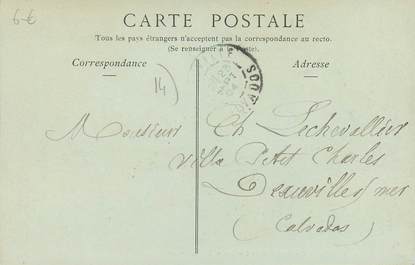 6-€
CARTE POSTALE
Tous les pays étrangers n'acceptent pas la correspondance au recto.
(Se renseigner à la Poste).
Correspondance
Adresse
14)
Monsieur Ch Lechevallier
Villa Petit Charles
Deauville s/ mer
(Calvados)